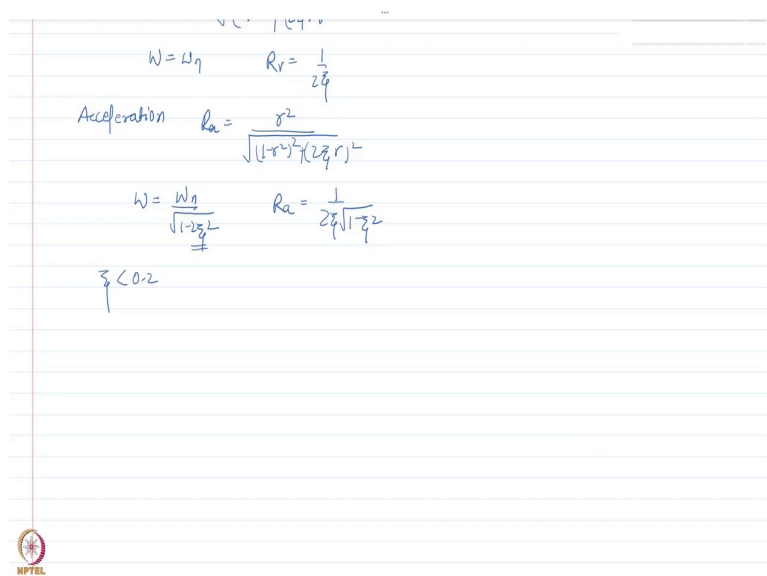 W = Wη Rv = 1/2ξ
Acceleration Ra = r²/√(1-r²)²+(2ξr)²
W = Wη/√1-2ξ² Ra = 1/2ξ√1-ξ²
ξ < 0.2
NPTEL